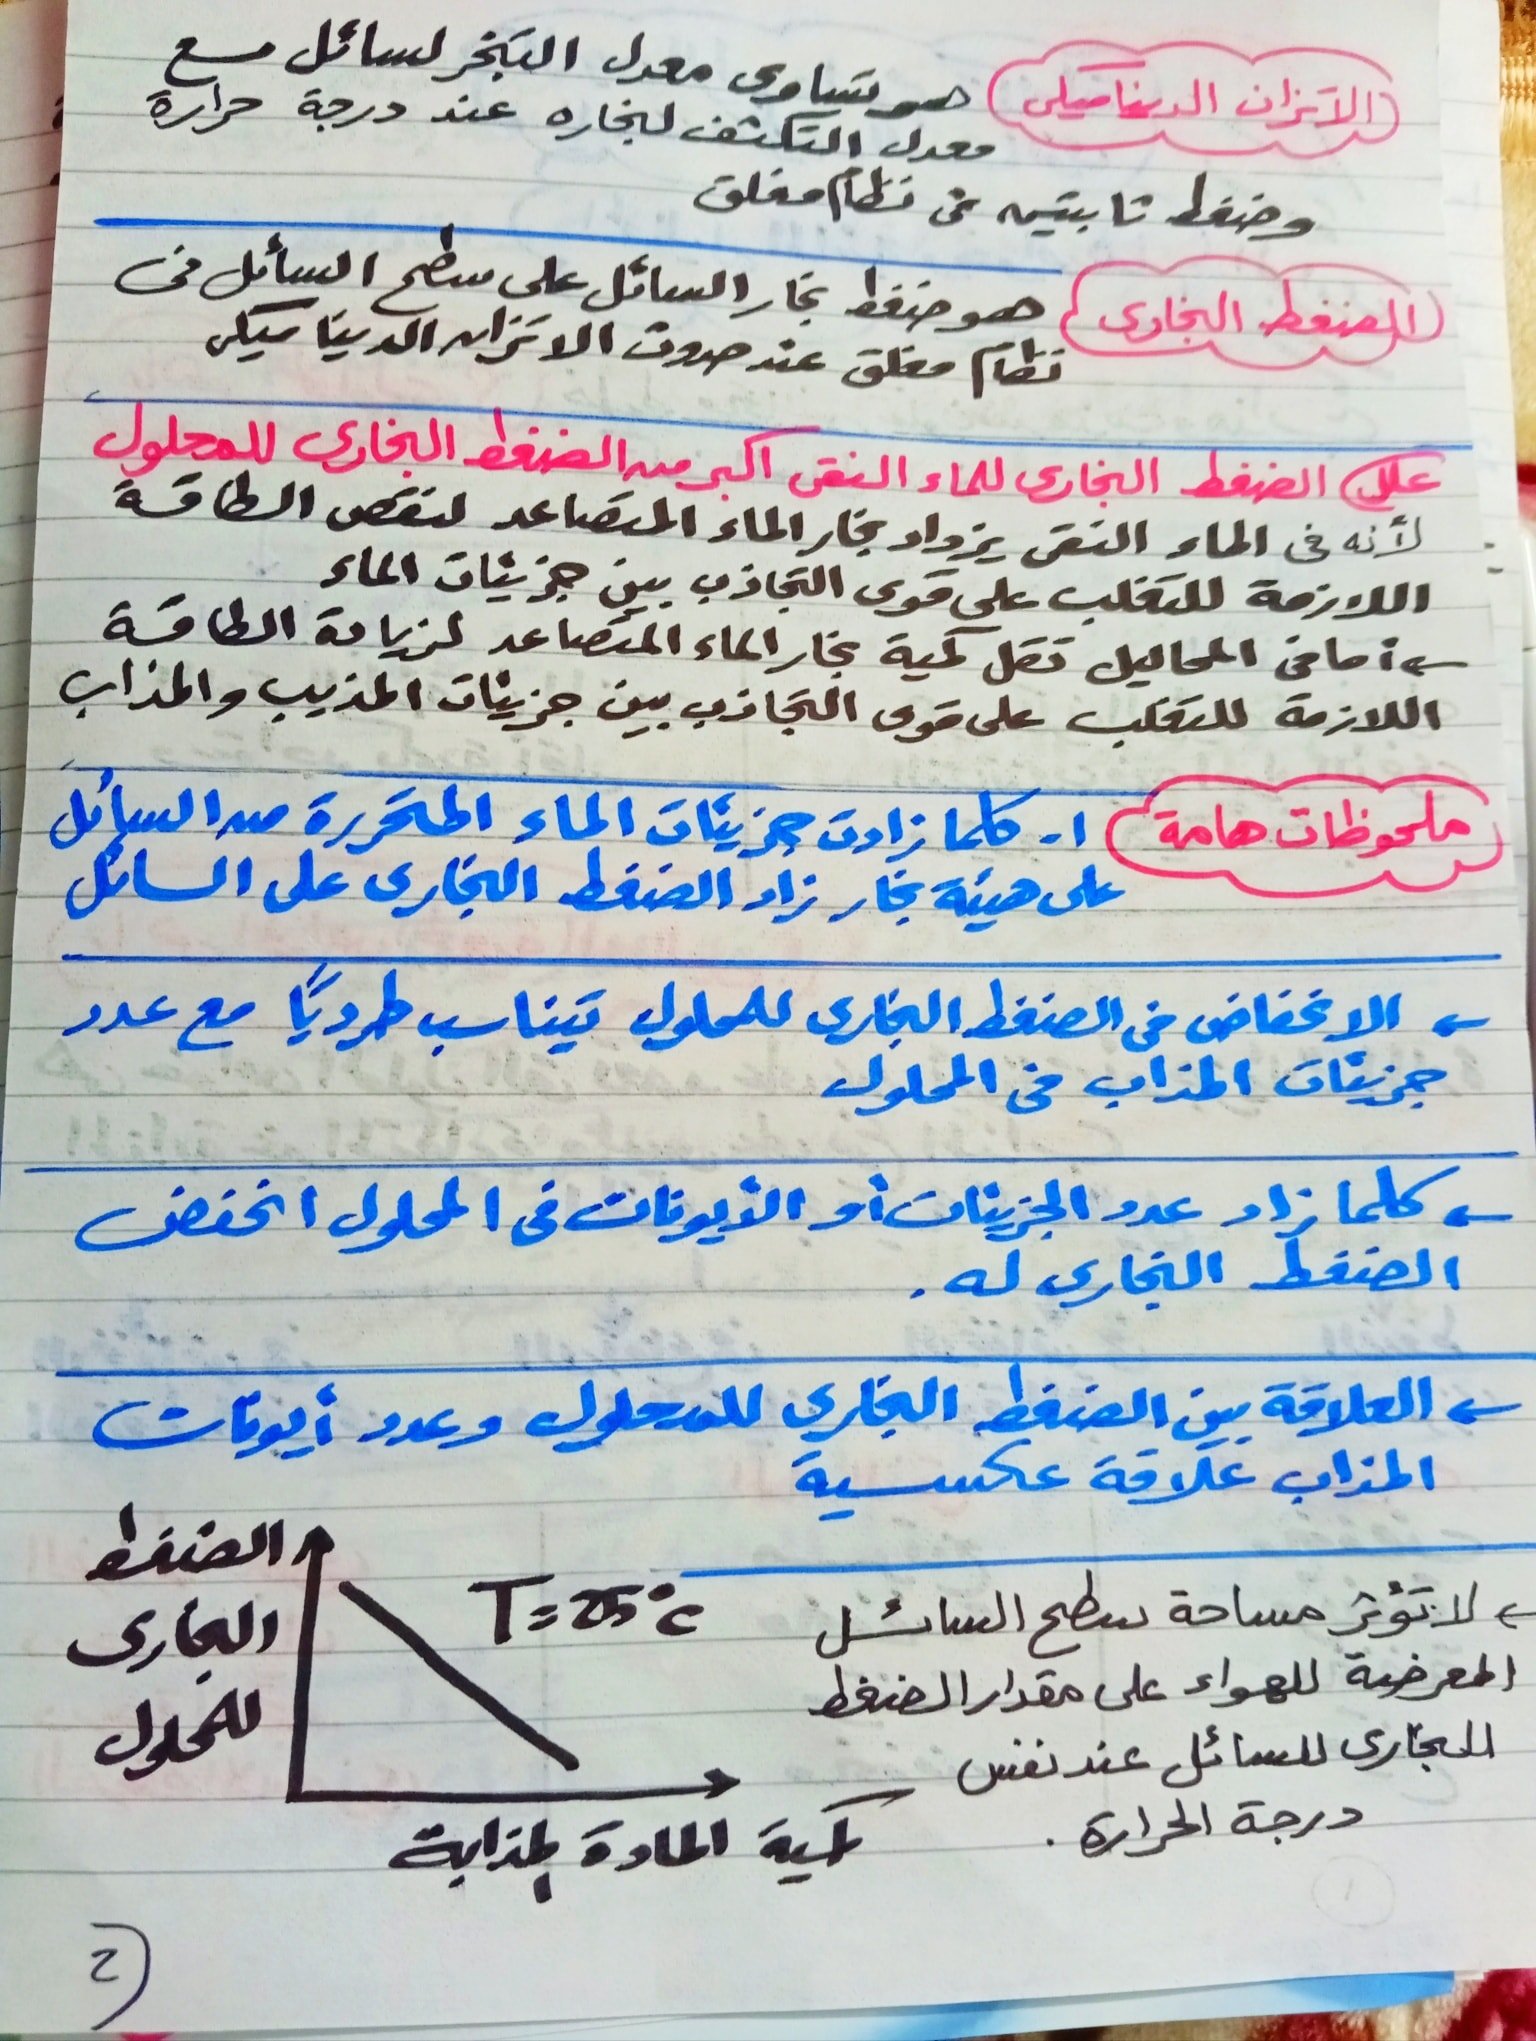 الاتزان الديناميكى هو تساوى معدل التبخر لسائل مع
معدل التكثف لبخاره عند درجة حرارة
وضغط ثابتين فى نظام مغلق
الضغط البخارى هو ضغط بخار السائل على سطح السائل فى
نظام مغلق عند حدوث الاتزان الديناميكى
علل الضغط البخارى للماء النقى اكبر من الضغط البخارى للمحلول
لأنه فى الماء النقى يزداد بخار الماء المتصاعد لنقص الطاقة
اللازمة للتغلب على قوى التجاذب بين جزيئات الماء
← أما فى المحاليل تقل كمية بخار الماء المتصاعد لزيادة الطاقة
اللازمة للتغلب على قوى التجاذب بين جزيئات المذيب والمذاب
ملحوظات هامة ١- كلما زادت جزيئات الماء المتحررة من السائل
على هيئة بخار زاد الضغط البخارى على السائل
← الانخفاض فى الضغط البخارى للمحلول تيناسب طرديًا مع عدد
جزيئات المذاب فى المحلول
← كلما زاد عدد الجزيئات أو الأيونات فى المحلول انخفض
الضغط البخارى له .
← العلاقة بين الضغط البخارى للمحلول وعدد أيونات
المذاب علاقة عكسية
← لا تؤثر مساحة سطح السائل
المعرضة للهواء على مقدار الضغط
البخارى للسائل عند نفس
درجة الحرارة .
الضغط
البخارى
للمحلول
T = 25°c
كمية المادة المذابة
2